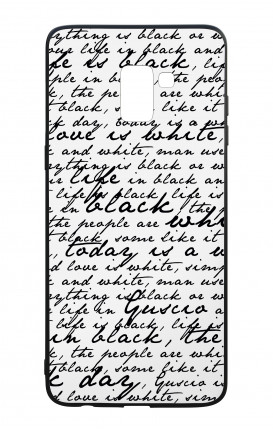 ything is black or w
our life in black and
e is black, lif
ple in b the peo
k, the p are whi
t black, like it
f day, today is a wo
love is white,
and white, man use
ything is black or w
r life in black an
life is black, life is
in black, the
the people are whi
black, some like it
k, today is a w
d love is white, simp
and white, man use
ything is black or w
r life in Guscio a
life is black, life is
in black the
k, the people are whi
t black, some like it
k day, Guscio i
s love is white, sim